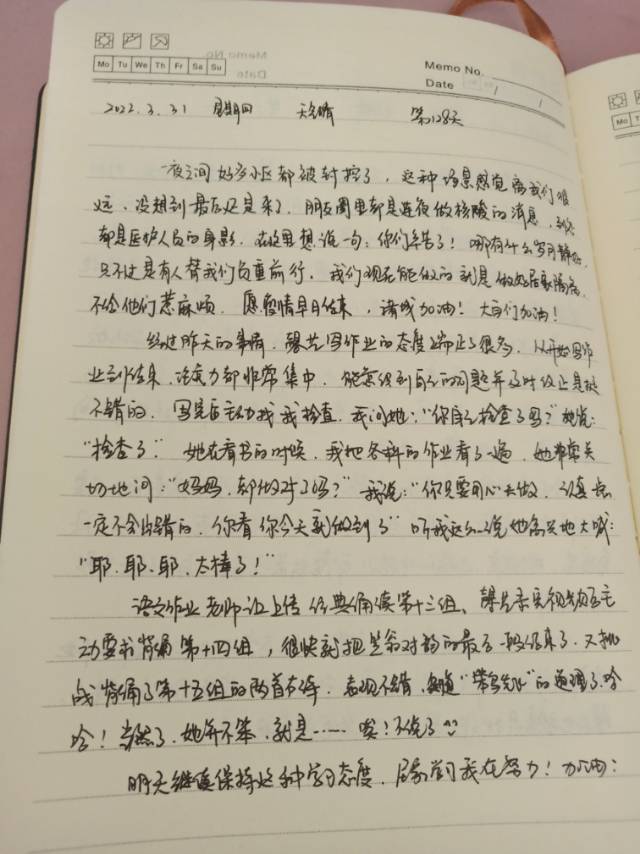 Memo No.
Mo Tu We Th Fr Sa Su
Date / /
2022.3.31 星期四 天气晴 第128天
一夜之间好多小区都被封控了，这种场景感觉离我们很
远，没想到最后还是来了。朋友圈里都是连夜做核酸的消息，到处
都是医护人员的身影。在这里想说一句：你们辛苦了！哪有什么岁月静好，
只不过是有人替我们负重前行。我们现在能做的就是做好居家隔离，
不给他们惹麻烦。愿疫情早日结束，诸城加油！大白们加油！
经过昨天的事情，馨艺写作业的态度端正了很多，从开始写作
业到结束，注意力都非常集中，能意识到自己的问题并及时改正是挺
不错的。写完后主动找我检查，我问她："你自己检查了吗？"她说：
"检查了"。她在看书的时候，我把各科的作业看了一遍，她非常关
切地问："妈妈，都做对了吗？"我说："你只要用心去做，认真点
一定不会出错的，你看你今天就做到了"听我这么说她高兴地大喊：
"耶、耶、耶，太棒了！"
语文作业老师让上传经典诵读第十三组，馨艺录完视频后主
动要求背诵第十四组，很快就把笠翁对韵的最后一段结束了。又挑
战背诵了第十五组的两首古诗，表现不错，知道"笨鸟先飞"的道理了，哈
哈！当然了，她并不笨，就是……唉！不说了
明天继续保持这种学习态度，居家学习我在努力！加油！
Mo Tu